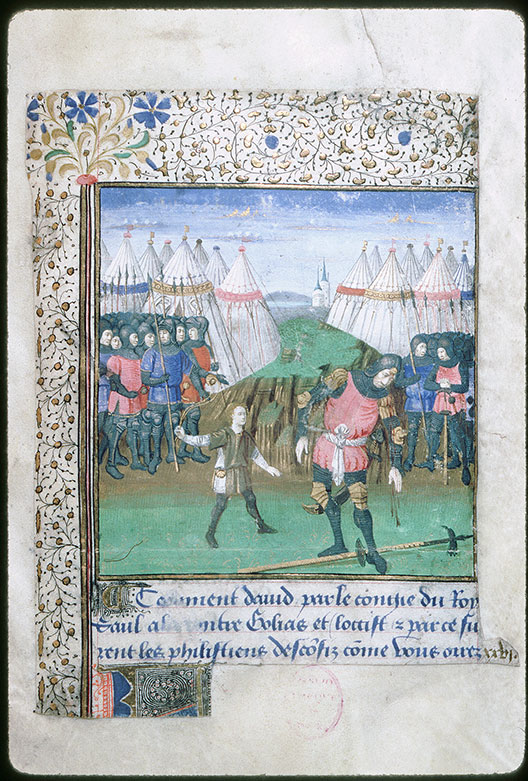 Et coment dauid par le congie du Roy
Saul ala contre Golias et loccist ⁊ par ce fu
rent les philistiens desconfiz cōme vous orrez xxvi.